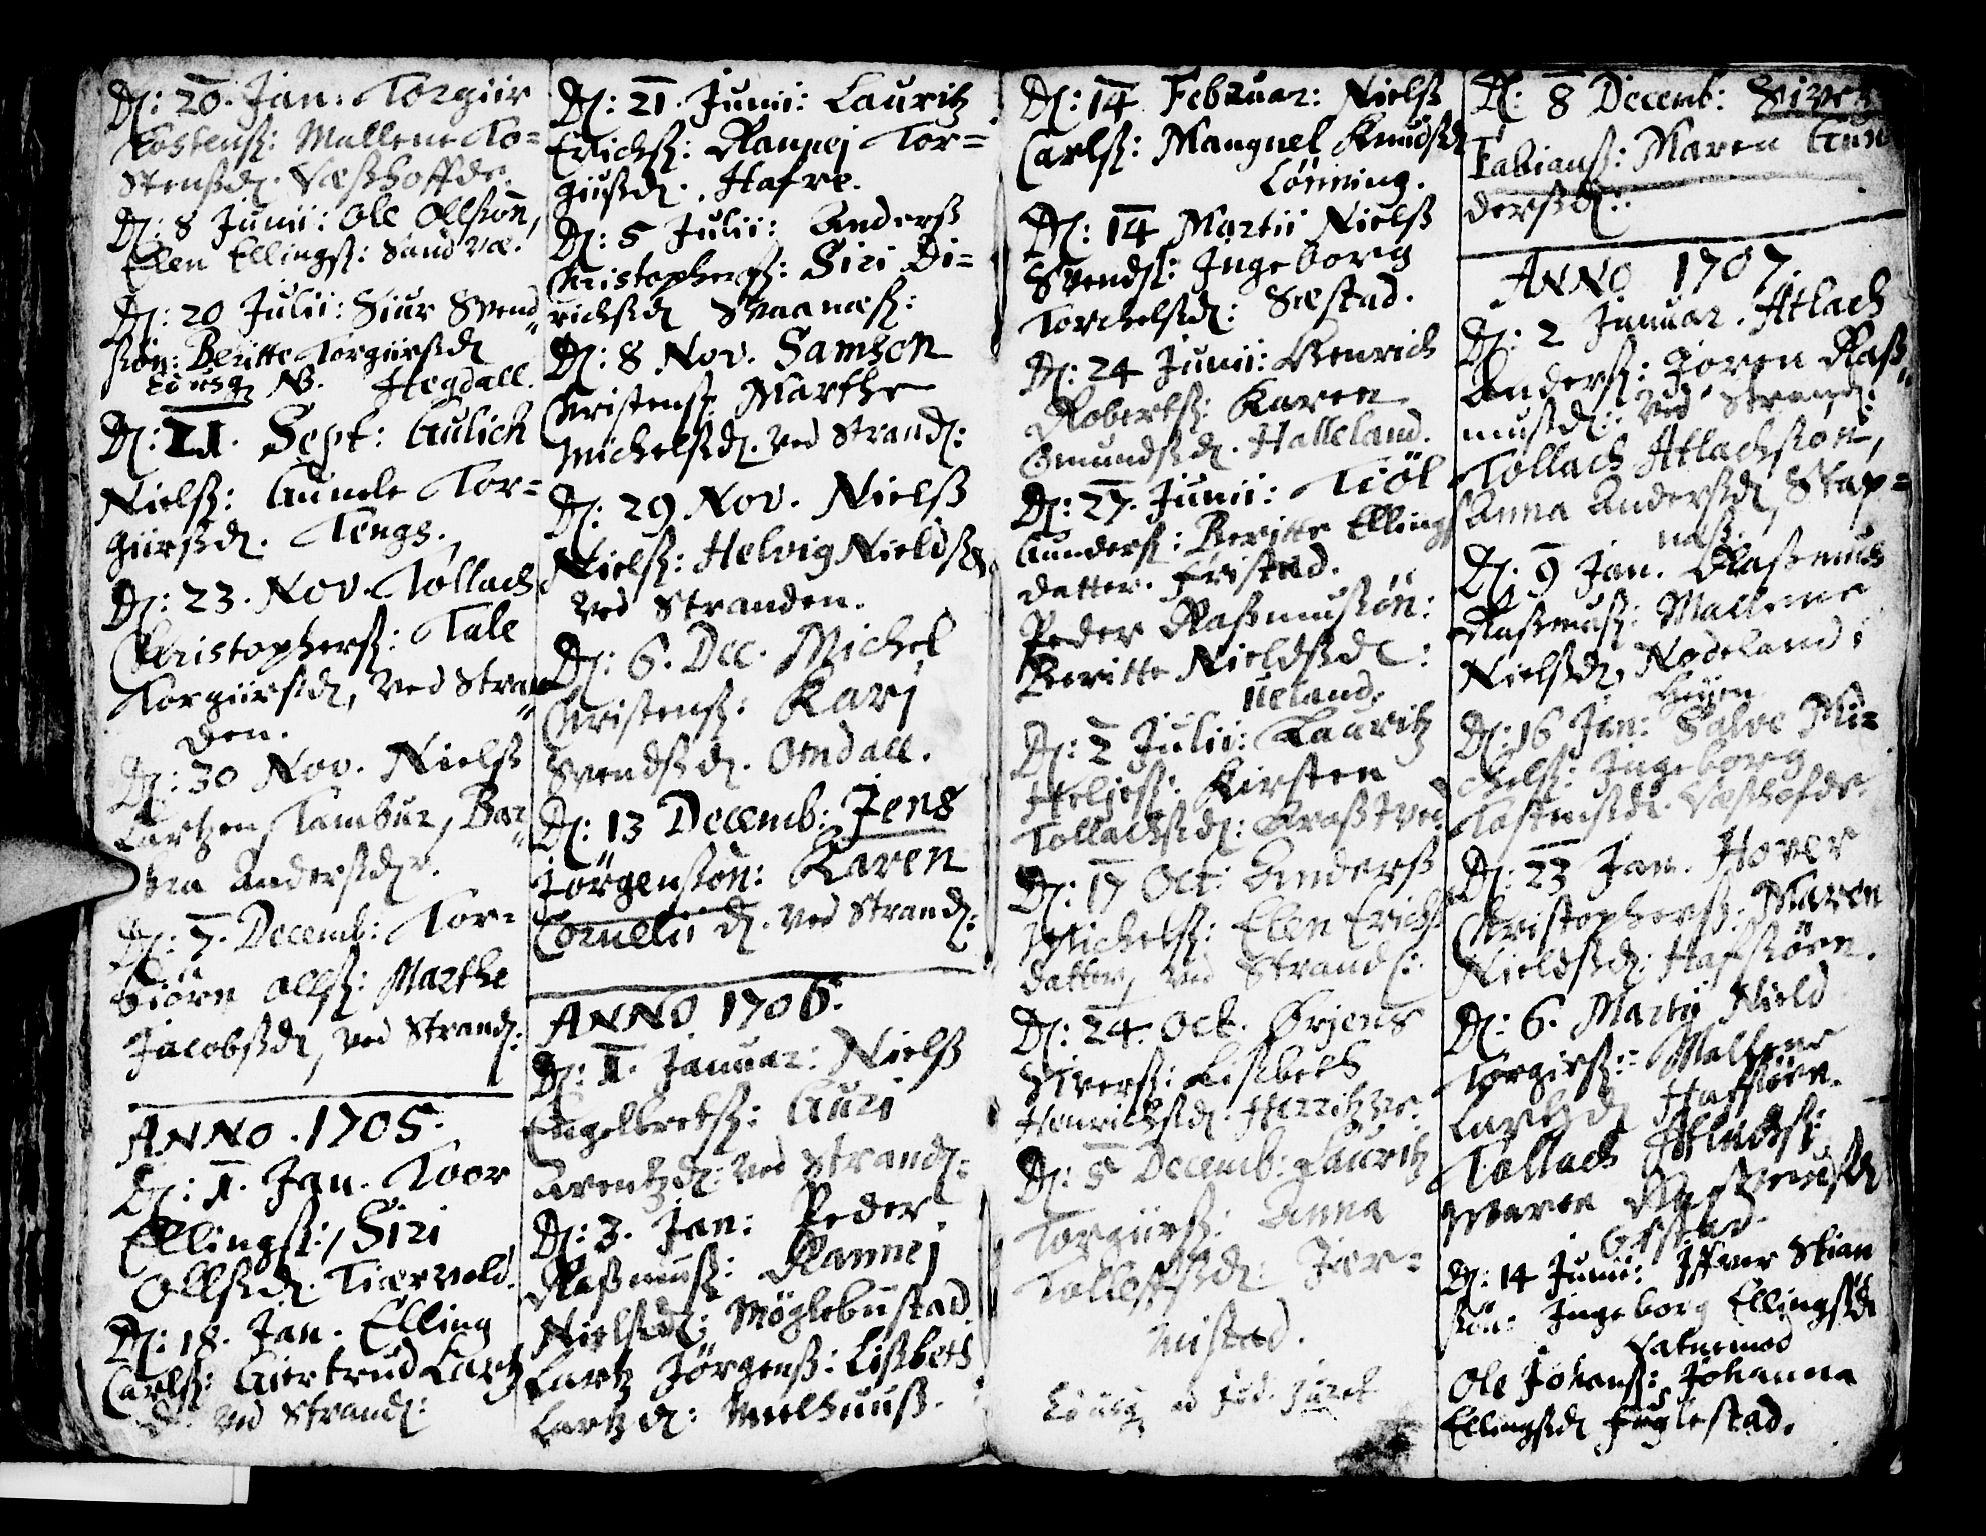 D: 20. Jan: Torgiir
Tostenß: Mallene To=
stensd. Væßhoffde.
D: 8 Junii: Ole Ollsøn,
Elen Ellingsd: Sandvæ.
D: 20 Julii: Siur Svend
søn: Beritte Torgiirsd
NB. Hegdall.
D: 11. Sept: Gulich
Nielß: Gunele Tor=
giirsd. Tengs.
D: 23. Nov. Tollach
Christophersß: Tale
Torgiirsd, ved Stran
den.
D: 30 Nov. Nielß
Lartzen Tambur, Bar
bra Andersdr.
D: 7. Decemb: Tor-
biørn Ollß: Marthe
Jacobsd, ved Strand:
ANNO. 1705.
D: 1. Jan. Toor
Ellingß:, Siri
Ollsd. Tiærvold.
D: 18. Jan. Elling
Carlß: Giertrud Lartz
d. ved Strand:
D: 21. Junii: Lauritz
Erichß: Rannej Tor=
giusd. Hafre.
D: 5 Julii: Anderß
Christopherß: Siri Di=
richsd Svaanæß:
D: 8 Nov. Samson
Christenß: Marthe
Michelsd. ved Strand:
D: 29 Nov. Nielß
Nielß: Helvig Nieldsd
ved Stranden.
D: 6. Dec. Michel
Christenß: Karj
Svendsd. Omdall.
D: 13 Decemb: Jens
Jörgensøn: Karen
Cornelii d. ved Strand:
ANNO 1706.
D: 1. Januar: Nielß
Engelbretß: Guri
Arentzd: ved Strand:
D: 3. Jan: Peder
Raßmusß: Rannej
Nielsd: Möglebustad
Lartz Jörgenß: Lißbeth
Lartzd: Melhuuß.
D: 14 Februar: Nielß
Carlß: Mangnel Knudsd
Lönning.
D: 14 Martii Nielß
Svendß: Ingeborg
Torchelsd: Sæstad.
D: 24 Junii: Henrich
Robertß: Karen
Omundsd. Halleland.
D: 27. Junii: Tiöl
Gunderß: Beritte Ellings
datter. Eristad.
Peder Raßmusøn:
Beritte Nieldsd:
Ueland.
D: 2 Julii: Lauritz
Heljeß: Kirsten
Tollachsd: Braßtved
D: 17 Oct: Anderß
Michelß: Elen Erichs
datter, ved Strand:
D: 24. Oct. Örjens
Siverß: Lisbeth
Henrichsd.
D: 5 Decemb: Lauritz
Torgiirß: Anna
Tolleffsd: Jær=
nistad.
D: 8 Decemb: Siver
Fabianß: Maren Gun
dersd:
ANNO 1707.
D: 2 Januar. Atlach
Anderß: Joren Raß
musd: ved Strand:
Tollach Atlachsøn,
Anna Andersd, Skap=
naß.
D. 9 Jan. Raßmus
Raßmusß: Mallene
Nielsd, Nodeland:
D: 16 Jan: Salve Mi=
chelß: Ingeborg
Tostensd. Væshofde
D: 23 Jan. Hover
Christopherß: Maren
Nieldsd: Hafsøen.
D: 6. Martii Nield
Torgirß: Mallene
Lartzd Hafsøen.
Tollach Atlachß:
Maren Raßmusd
D: 14 Junii: Iffver Stian
søn: Ingeborg Ellingsd
Vatnemod
Ole Johanß: Johanna
Ellingsd Fuglestad.